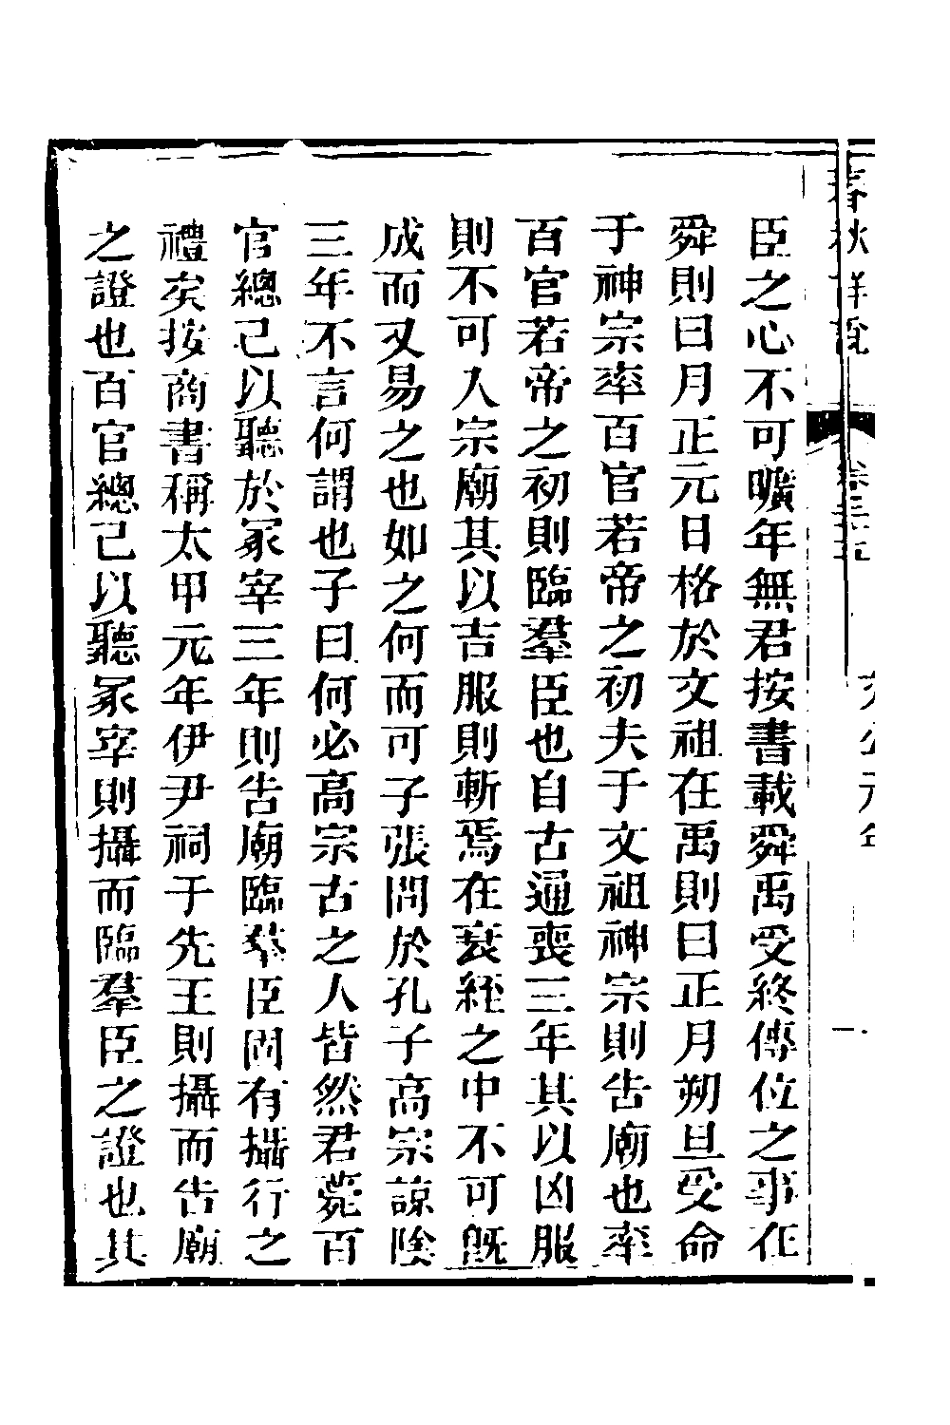 春秋詳說
卷三十五
文公元年
一
臣之心不可曠年無君按書載舜禹受終傳位之事在
舜則曰月正元日格於文祖在禹則曰正月朔旦受命
于神宗率百官若帝之初夫于文祖神宗則告廟也率
百官若帝之初則臨羣臣也自古通喪三年其以凶服
則不可入宗廟其以吉服則斬焉在衰絰之中不可旣
成而又易之也如之何而可子張問於孔子高宗諒陰
三年不言何謂也子曰何必高宗古之人皆然君薨百
官總己以聽於冢宰三年則告廟臨羣臣固有攝行之
禮矣按商書稱太甲元年伊尹祠于先王則攝而告廟
之證也百官總己以聽冢宰則攝而臨羣臣之證也其